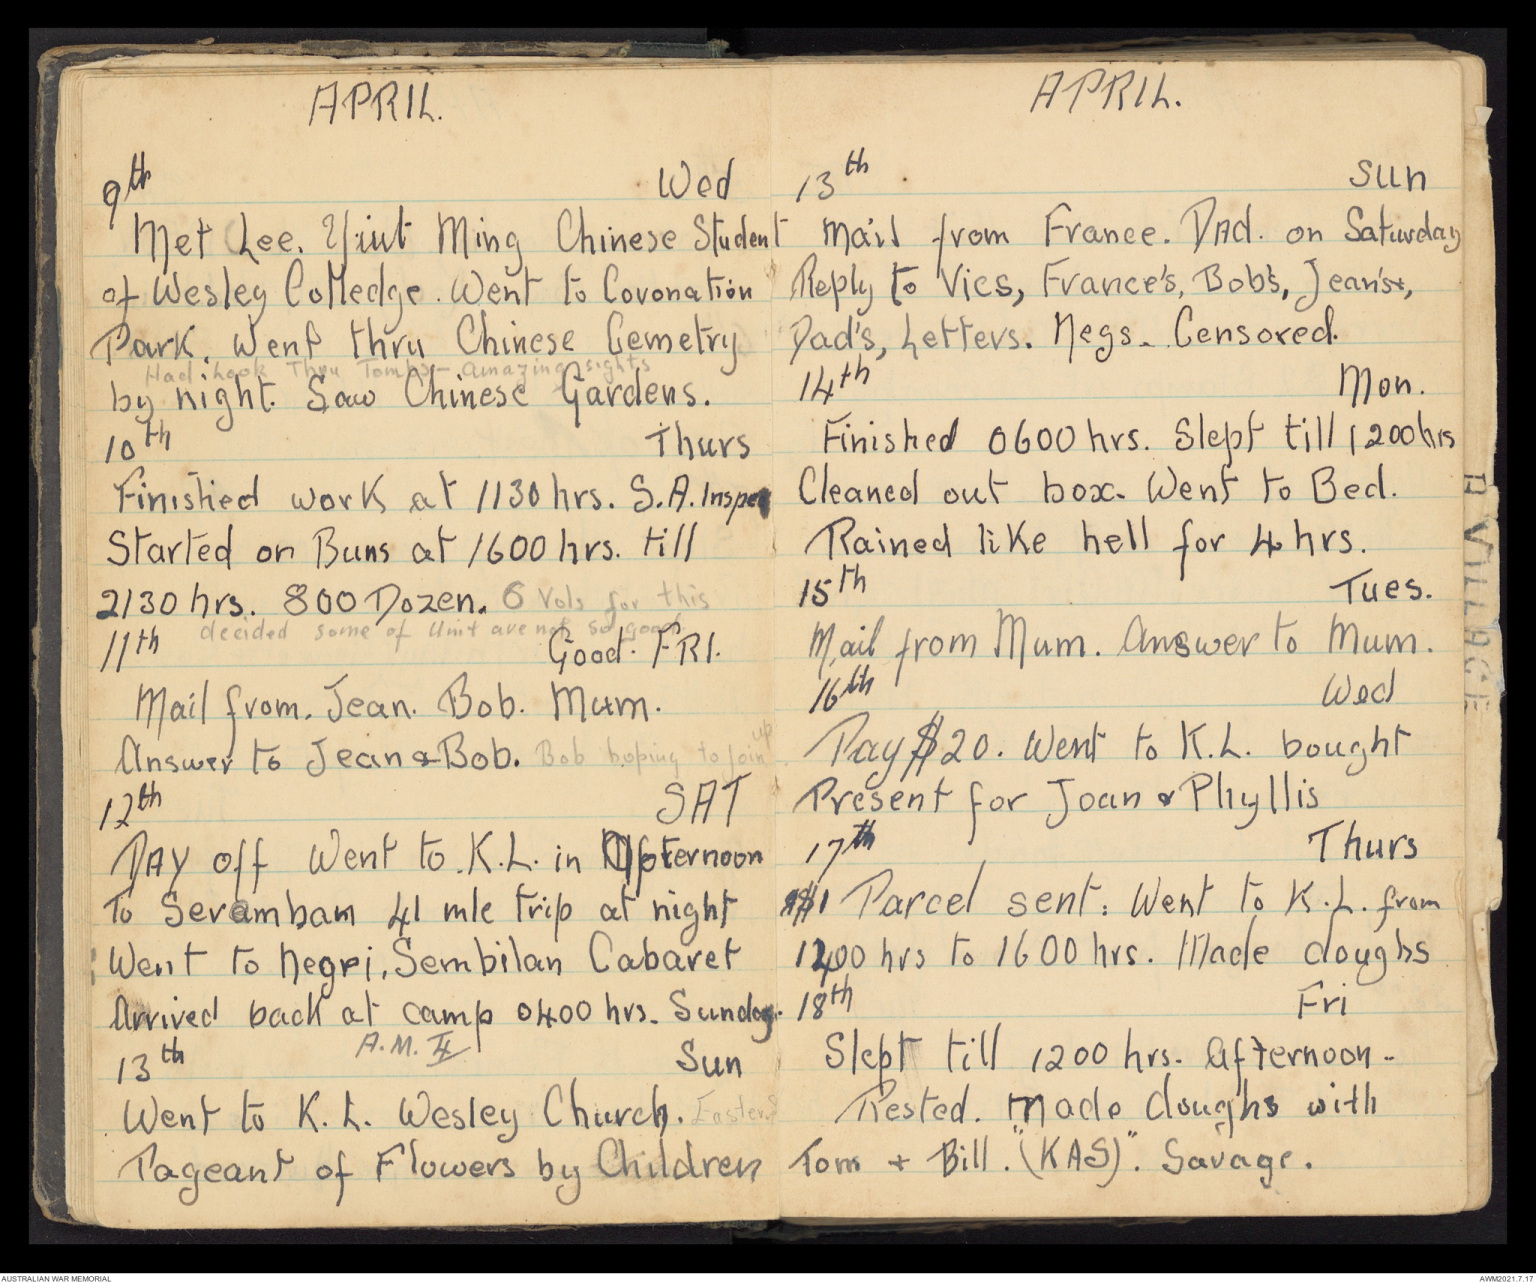 APRIL.
9th Wed
Met Lee. Yiut Ming Chinese Student
of Wesley Colledge. Went to Coronation
Park. Went thru Chinese Cemetry
Had look Thru Tombs - amazing sights
by night. Saw Chinese Gardens.
10th Thurs
Finished work at 1130 hrs. S.A. Inspec
Started on Buns at 1600 hrs. till
2130 hrs. 800 Dozen. 6 Vols for this
decided some of Unit are not so good
11th Good. FRI.
Mail from. Jean. Bob. Mum.
Answer to Jean & Bob. Bob hoping to join up
12th SAT
DAY off Went to K.L. in Afternoon
To Serambam 41 mle trip at night
Went to Negri, Sembilan Cabaret
Arrived back at camp 0400 hrs. Sunday.
A.M. II
13th Sun
Went to K.L. Wesley Church. Easter
Pageant of Flowers by Children
APRIL.
13th Sun
Mail from France. DAd. on Saturday
Reply to Vics, France's, Bob's, Jean's,
Dad's, Letters. Negs. Censored.
14th Mon.
Finished 0600 hrs. Slept till 1200 hrs
Cleaned out box. Went to Bed.
Rained like hell for 4 hrs.
15th Tues.
Mail from Mum. Answer to Mum.
16th Wed
Pay $20. Went to K.L. bought
Present for Joan & Phyllis
17th Thurs
$1 Parcel sent. Went to K.L. from
1200 hrs to 1600 hrs. Made doughs
18th Fri
Slept till 1200 hrs. Afternoon.
Rested. Made doughs with
Tom + Bill. "(KAS)". Savage.
VILLAGE
AUSTRALIAN WAR MEMORIAL
AWM2021.7.17